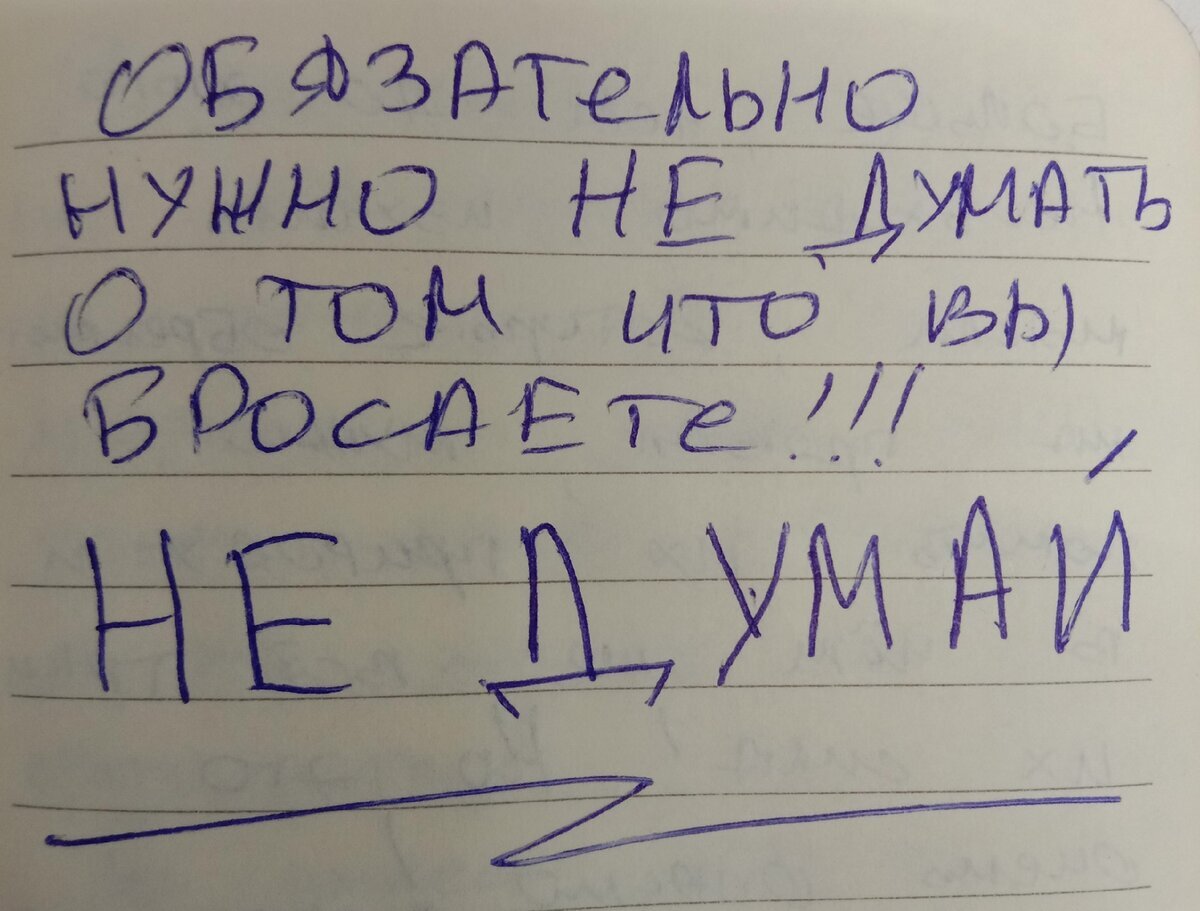 ОБЯЗАТеЛЬНО
НУЖНО НЕ ДУМАТЬ
О ТОМ ЧТО ВЫ
БРОСАЕТе!!!
НЕ ДУМАЙ